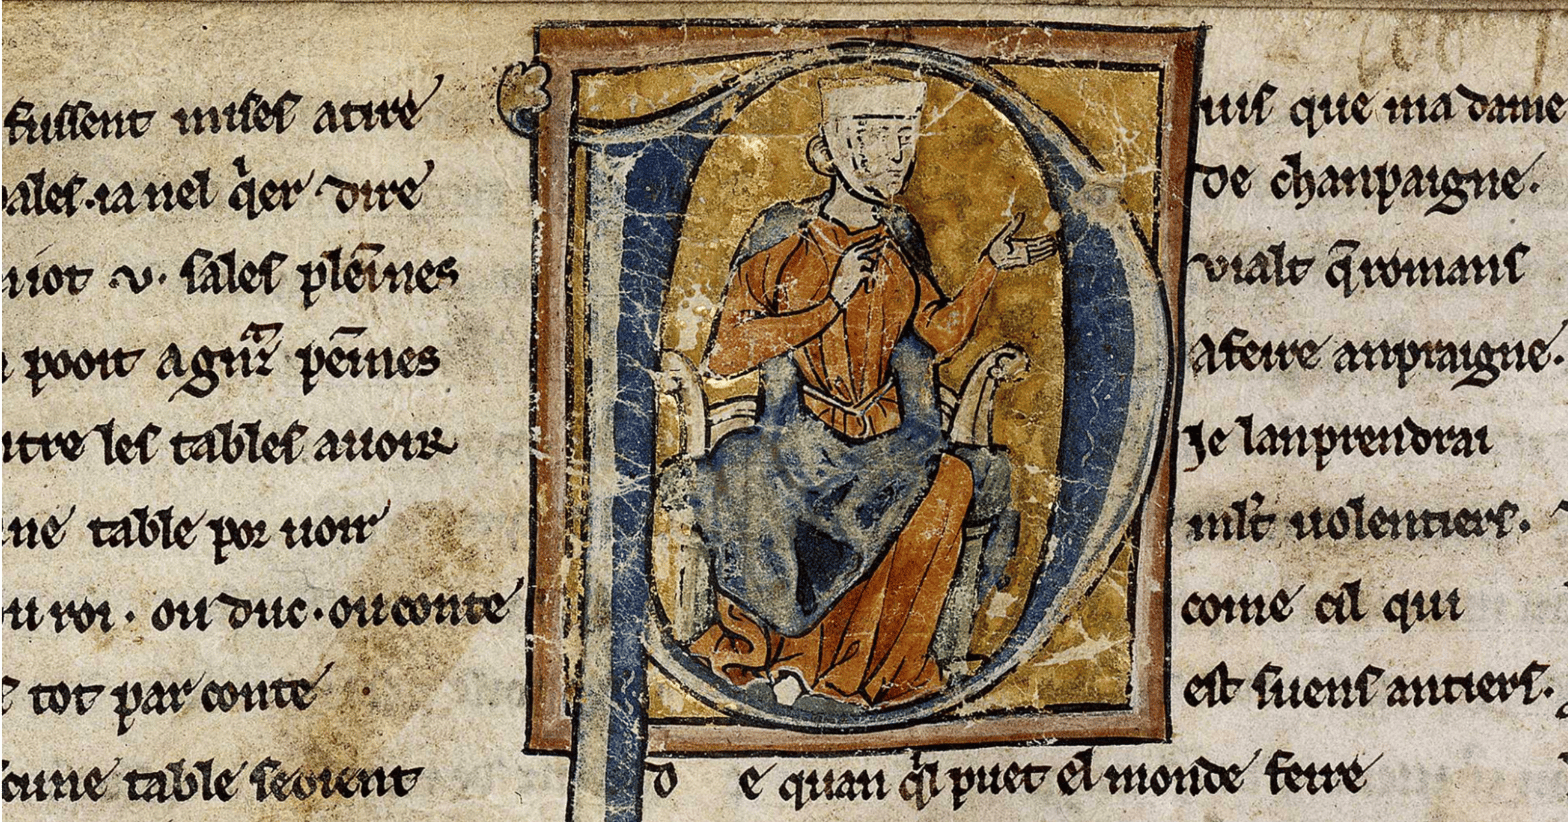 fussent mises a tire
ales. ia nel q̉er dire
uiot .v. sales plēines
pooit a gͣnz pēines
ntre les tables auoir
ne table por uoir
u roi. ou duc. ou conte
tot par conte
cune table seoient
Puis que ma dame
de chanpaigne.
vialt q̄ romans
a feire anpraigne.
Je lanprendrai
ml̉t uolentiers.
come cil qui
est suens antiers.
d e quan q̉l puet el monde feire